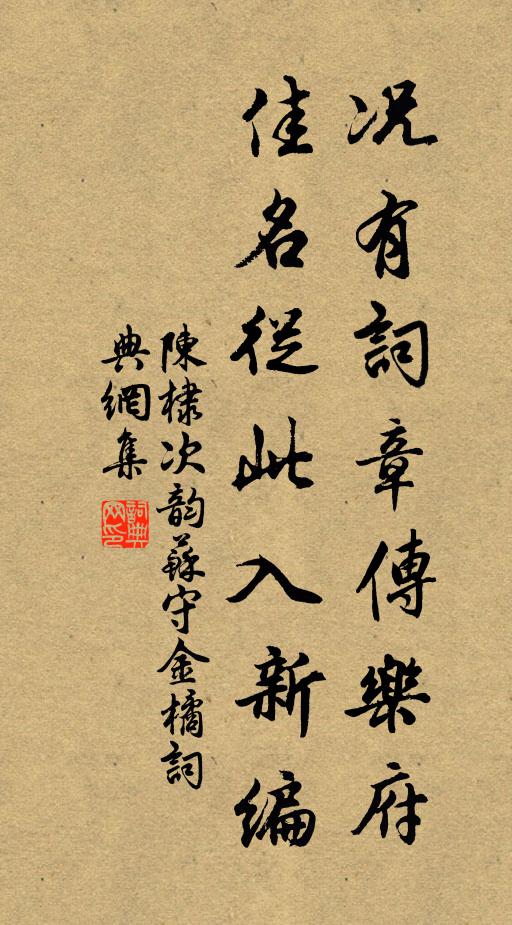 况有詞章傳樂府
佳名從此入新編
陳棣次韵蘇守金橘詞
典網集
詞典
网印